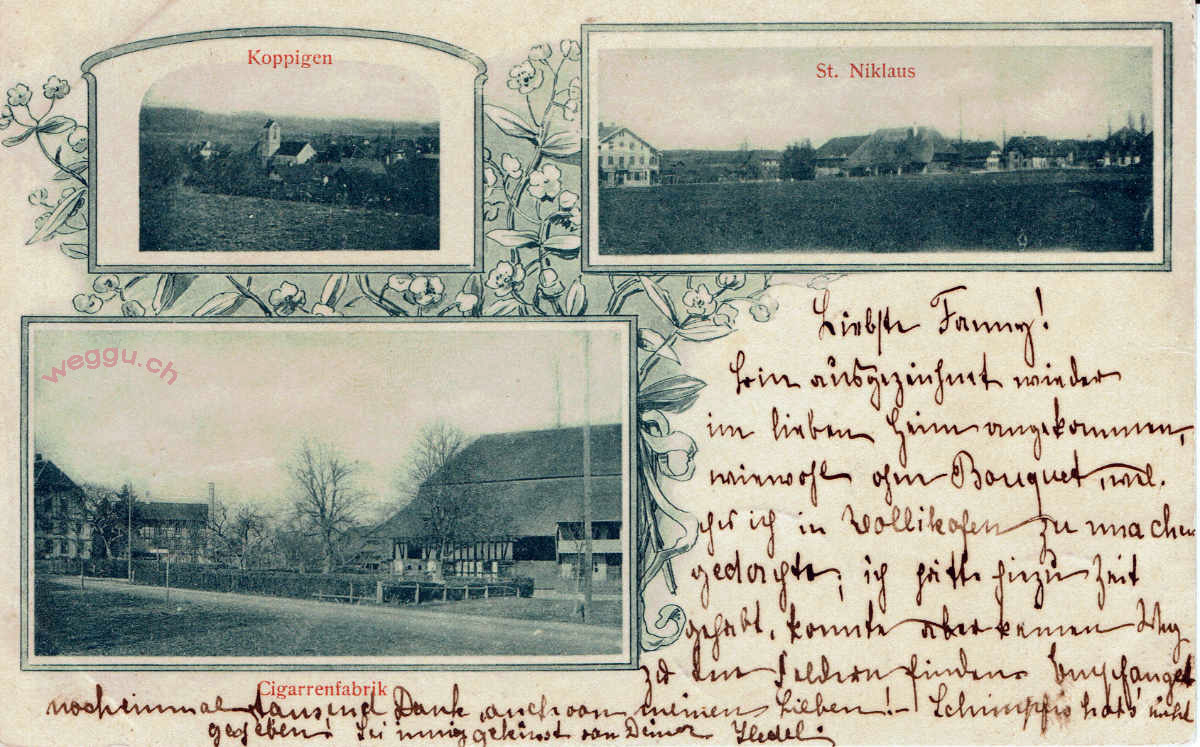 Koppigen
St. Niklaus
weggu.ch
Liebste Fanny!
Bin ausgezeichnet wieder
im lieben Heim angekommen,
wiewohl ohne Bouquet, wel-
ches ich in Zollikofen zu machen
gedachte; ich hätte hiezu Zeit
gehabt, konnte aber keinen Weg
zu den Feldern finden. Empfanget
Cigarrenfabrik
noch einmal tausend Dank, auch von meinen Lieben! – Schimpfis hat's nicht
gegeben! Sei innig geküsst von Deiner Hedel.